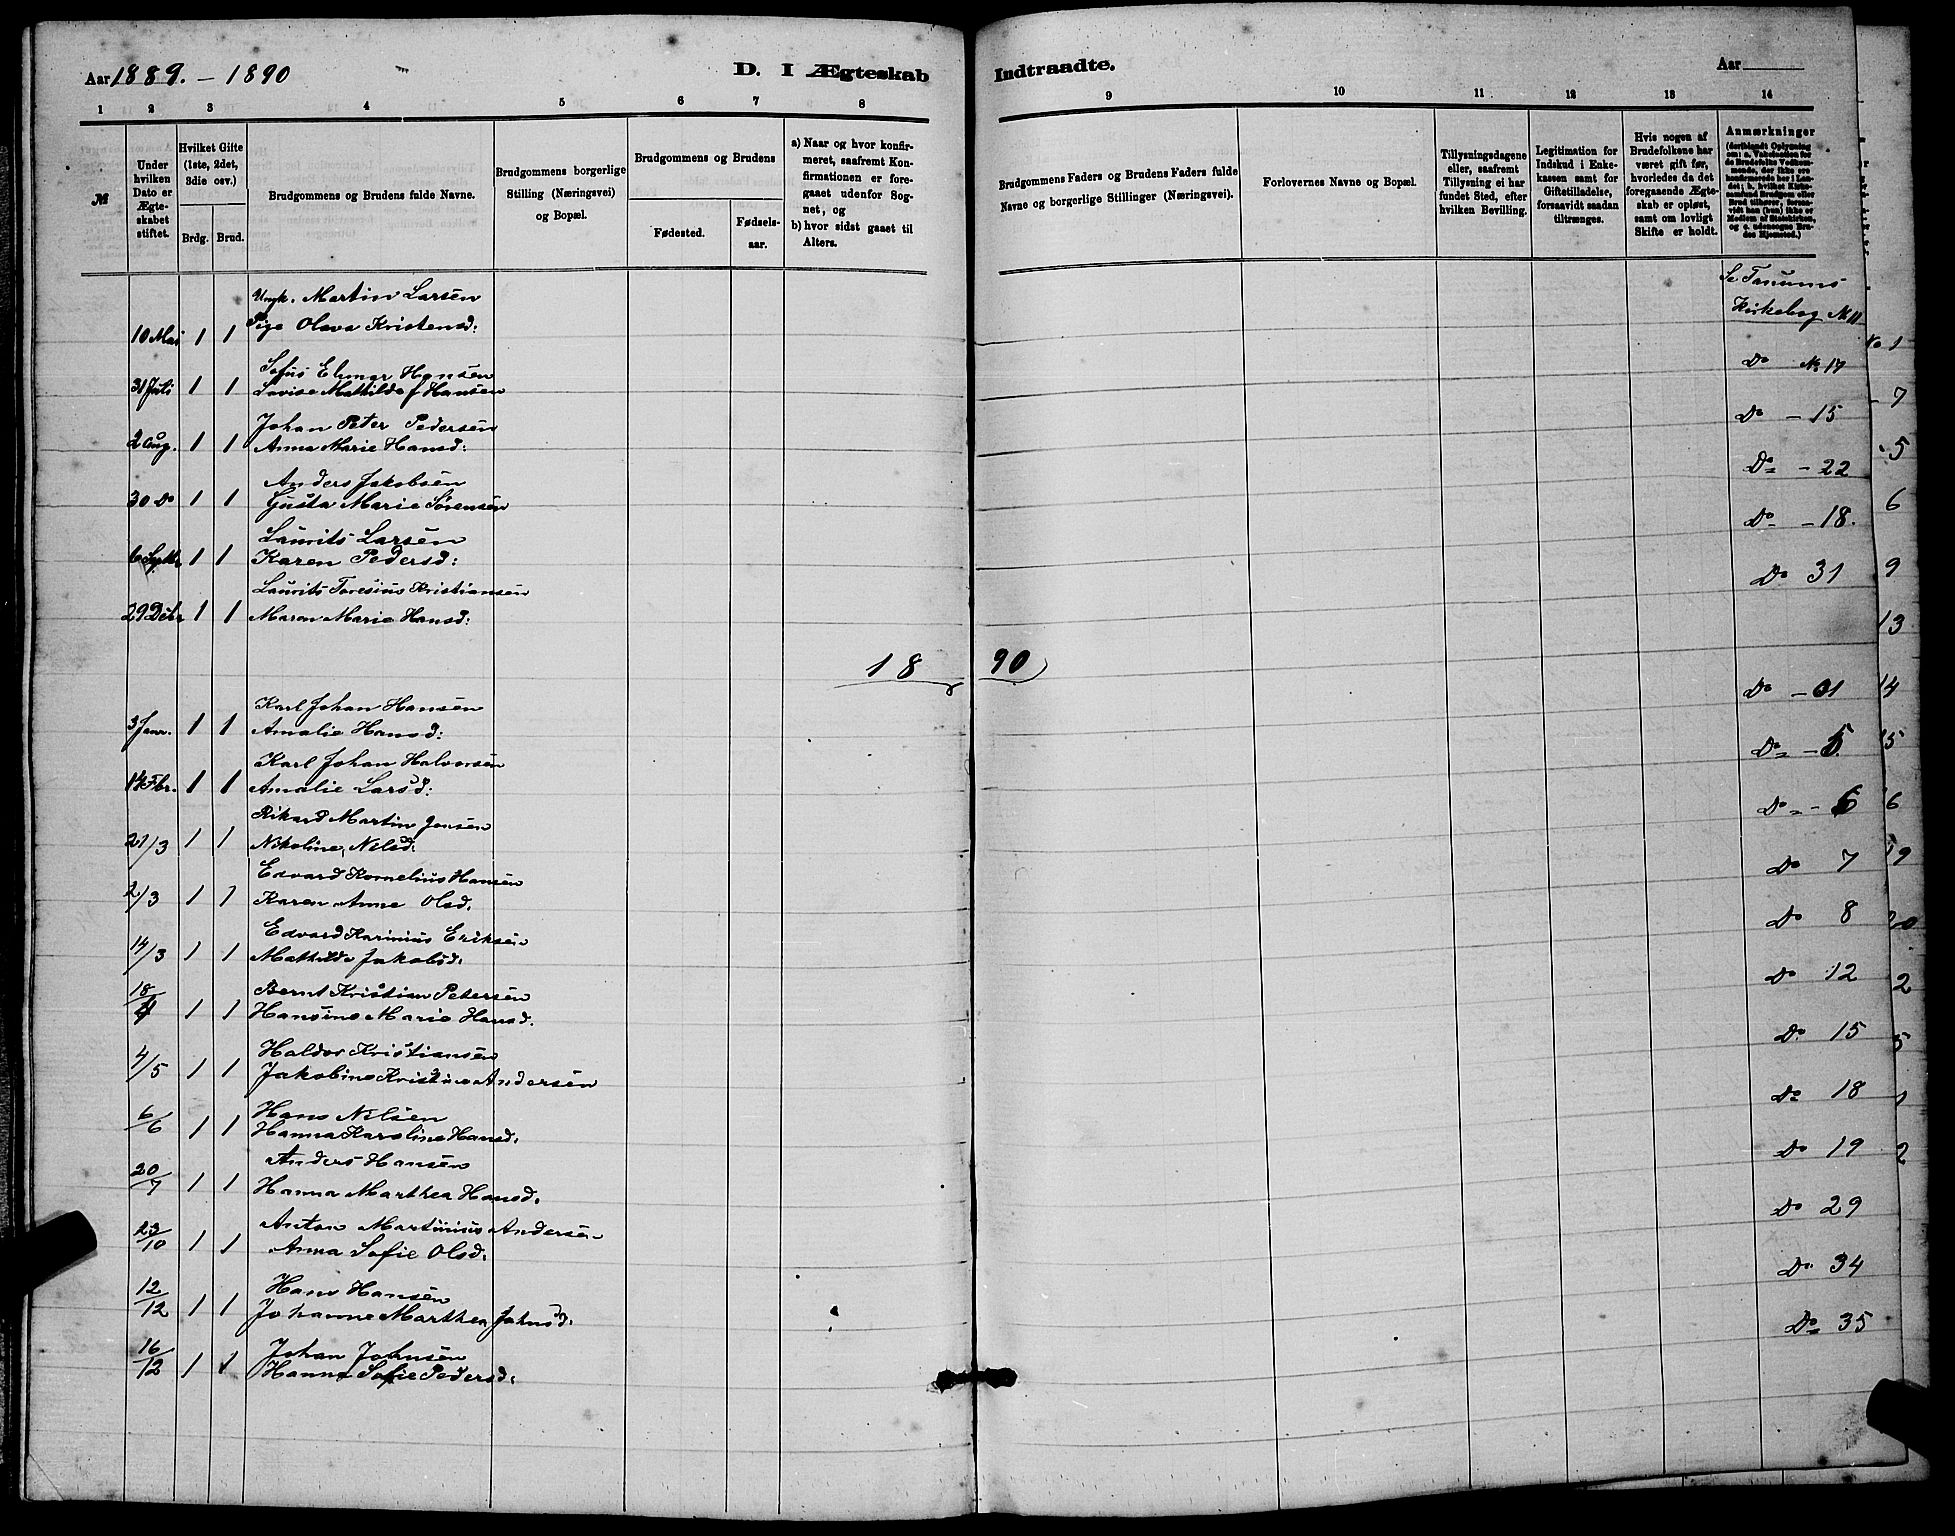 Aar 1889. - 1890
D. I Ægteskab Indtraadte.
Aar
1 2 3 4 5 6 7 8 9 10 11 12 13 14
№
Under hvilken Dato er Ægteskabet stiftet.
Hvilket Gifte (1ste, 2det, 3die osv.)
Brdg. Brud.
Brudgommens og Brudens fulde Navne.
Brudgommens borgerlige Stilling (Næringsvei) og Bopæl.
Brudgommens og Brudens
Fødested.
Fødselsaar.
a) Naar og hvor konfirmeret, saafremt Konfirmationen er foregaaet udenfor Sognet, og
b) hvor sidst gaaet til Alters.
Brudgommens Faders og Brudens Faders fulde Navne og borgerlige Stillinger (Næringsvei).
Forlovernes Navne og Bopæl.
Tillysningsdagene eller, saafremt Tillysning ei har fundet Sted, efter hvilken Bevilling.
Legitimation for Indskud i Enkekassen samt for Giftetilladelse, forsaavidt saadan tiltrænges.
Hvis nogen af Brudefolkene har været gift før, hvorledes da det foregaaende Ægteskab er opløst, samt om lovligt Skifte er holdt.
Anmærkninger (deriblandt Oplysning om: a. Vakcination for de Brudefolks Vedkommende, der ikke ere konfirmerede her i Landet; b. hvilket Kirkesamfund Brudgom eller Brud tilhører, forsaavidt han (hun) ikke er Medlem af Statskirken, og c. udensogns Brudes Hjemsted.)
Ungk. Martin Larsen Se Tanums
10 Mai 1 1 Pige Olava Kristensd: Kirkebog № 11
Sofus Elmar Hansen Do № 17
31 Juli 1 1 Lovise Mathilde J Hansen
Johan Peter Pedersen Do - 15
2 Aug. 1 1 Anna Marie Hansd:
Anders Jakobsen Do - 22
30 Do 1 1 Gusta Marie Sørensen
Laurits Larsen Do - 18.
6 Septbr 1 1 Karen Pedersd:
Laurits Toresius Kristiansen Do 31
29 Debr 1 1 Maren Marie Hansd:
1890
Karl Johan Hansen Do - 01
3 Janr. 1 1 Amalie Hansd:
Karl Johan Halvorsen Do - 5
14 Fbr. 1 1 Amalie Larsd:
Rikard Martin Jensen Do - 6
21/3 1 1 Nikoline Nilsd:
Edvard Kornelius Hansen Do 7
2/3 1 1 Karen Anne Olsd.
Edvard Karinius Eriksen Do 8
14/3 1 1 Mathilde Jakobsd:
Bernt Kristian Petersen Do 12
18/4 1 1 Hansine Marie Hansd.
Haldor Kristiansen Do 15
4/5 1 1 Jakobine Kristine Andersen
Hans Nilsen Do 18
6/6 1 1 Hanna Karoline Hansd.
Anders Hansen Do 19
20/7 1 1 Hanna Marthea Hansd.
Anton Martinius Andersen Do 29
23/10 1 1 Anna Sofie Olsd.
Hans Hansen Do 34
12/12 1 1 Johanne Marthea Johnsd.
Johan Johnsen Do 35
16/12 1 1 Hanna Sofie Pedersd.